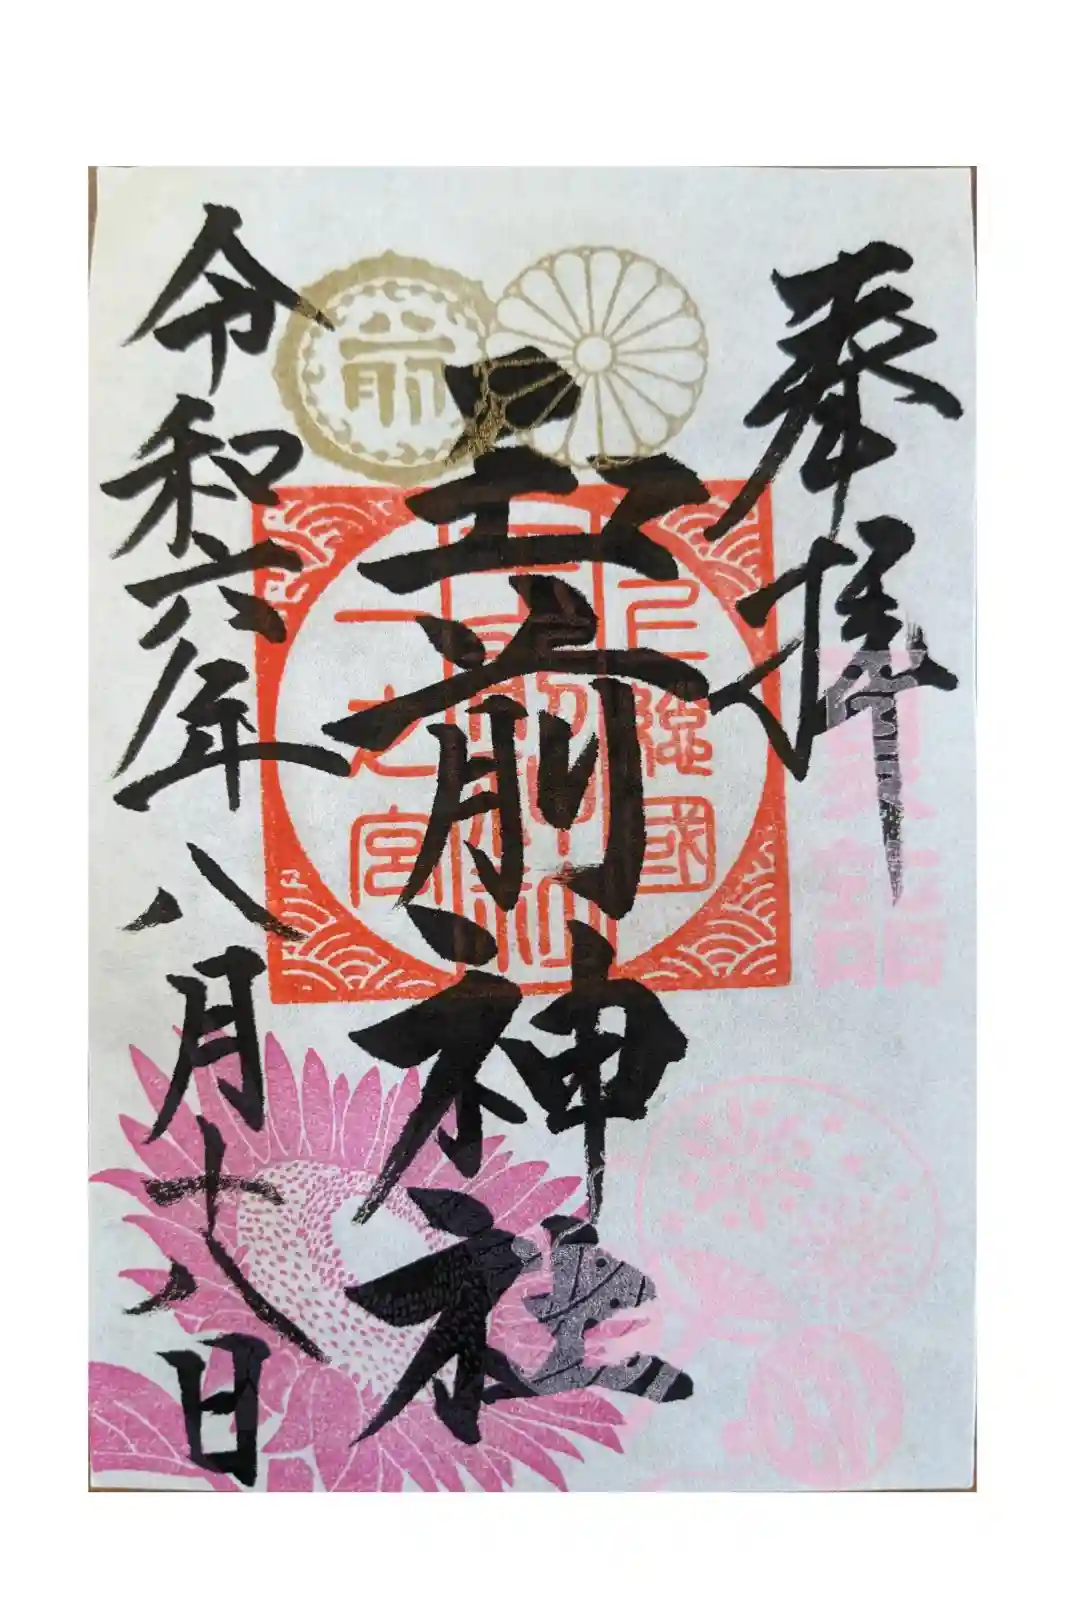 奉拝
夏詣
玉前神社
上總國
一之宮
前
令和六年八月十八日